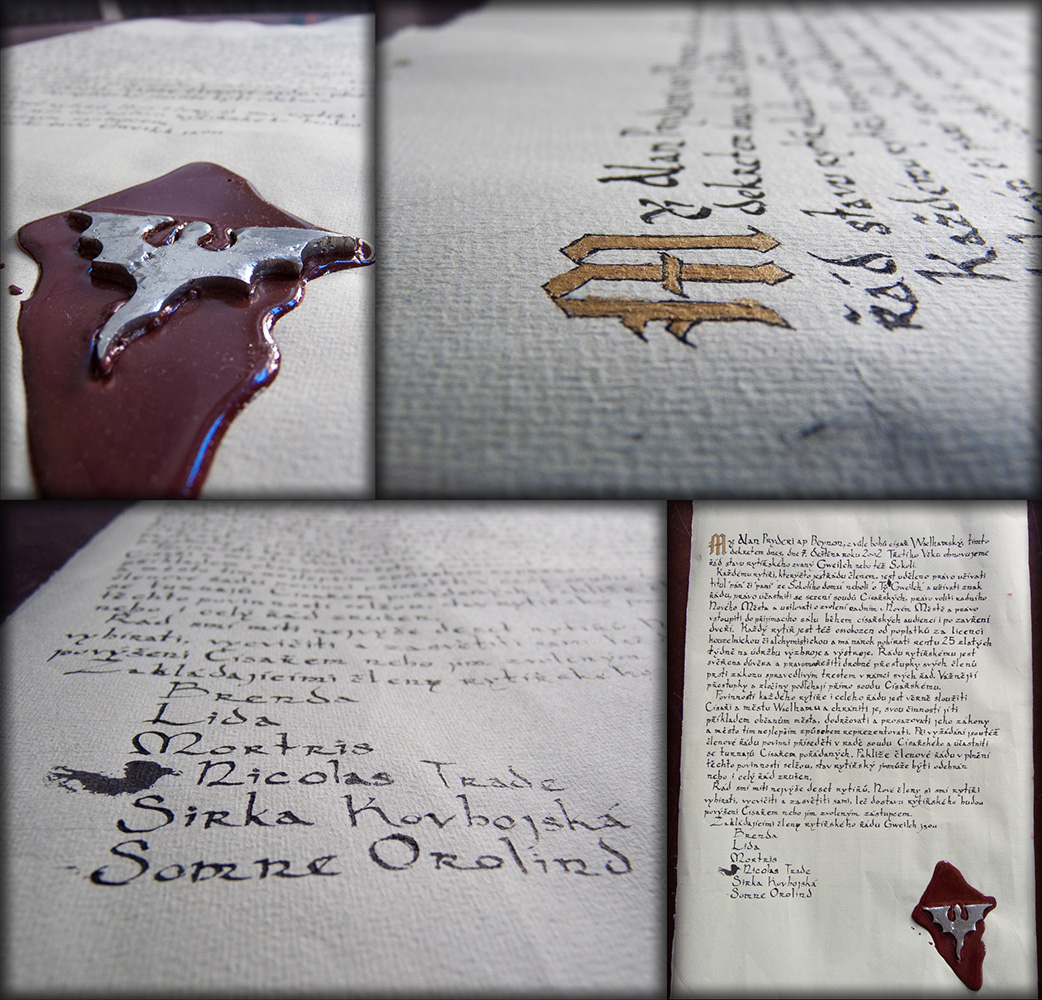 My Alan Pryderi ap Beynon, z vůle bohů císař Wielhamský, tímto
dekretem dnes, dne 7. če roku 2002 Třetího Věku obnovujeme
řád stavu rytířského zvaný Gweilch nebo též Sokoli.
Každému rytíři, kterýžto jest řádu členem, jest uděleno právo užívati
titul "pán" či "paní" ze Sokolího domu neboli "o Tŷ Gweilch" a užívati znak
řádu, právo účastniti se sezení soudů Císařských, právo voliti radního
Nového Města a usilovati o zvolení radním v Novém Městě a právo
vstoupiti do přijímacího sálu během císařských audiencí i po zavření
dveří. Každý rytíř jest též osvobozen od poplatků za licenci
kouzelnickou či alchymistickou a má nárok pobírati rentu 25 zlatých
týdně na údržbu výzbroje a výstroje. Řádu rytířskému jest
svěřena důvěra a pravomoc řešiti drobné přestupky svých členů
proti zákonu spravedlivým trestem v rámci svých řad. Vážnější
přestupky a zločiny podléhají přímo soudu Císařskému.
Povinností každého rytíře i celého řádu jest věrně sloužiti
Císaři a městu Wielhamu a chrániti je, svou činností jíti
příkladem občanům města, dodržovati a prosazovati jeho zákony
a město tím nejlepším způsobem reprezentovati. Při vyžádání jsou též
členové řádu povinni příseděti v radě soudu Císařského a účastniti
se turnajů Císařem pořádaných. Pakliže členové řádu v plnění
těchto povinností selžou, stav rytířský jim může býti odebrán
nebo i celý řád zrušen.
Řád smí míti nejvýše deset rytířů. Nové členy si smí rytíři
vybírati, vycvičiti a zasvětiti sami, leč do stavu rytířského budou
povýšeni Císařem nebo jím zvoleným zástupcem.
Zakládajícími členy rytířského řádu Gweilch jsou
Brenda
Lida
Mortris
Nicolas Trade
Sirka Kovbojská
Somne Orolind